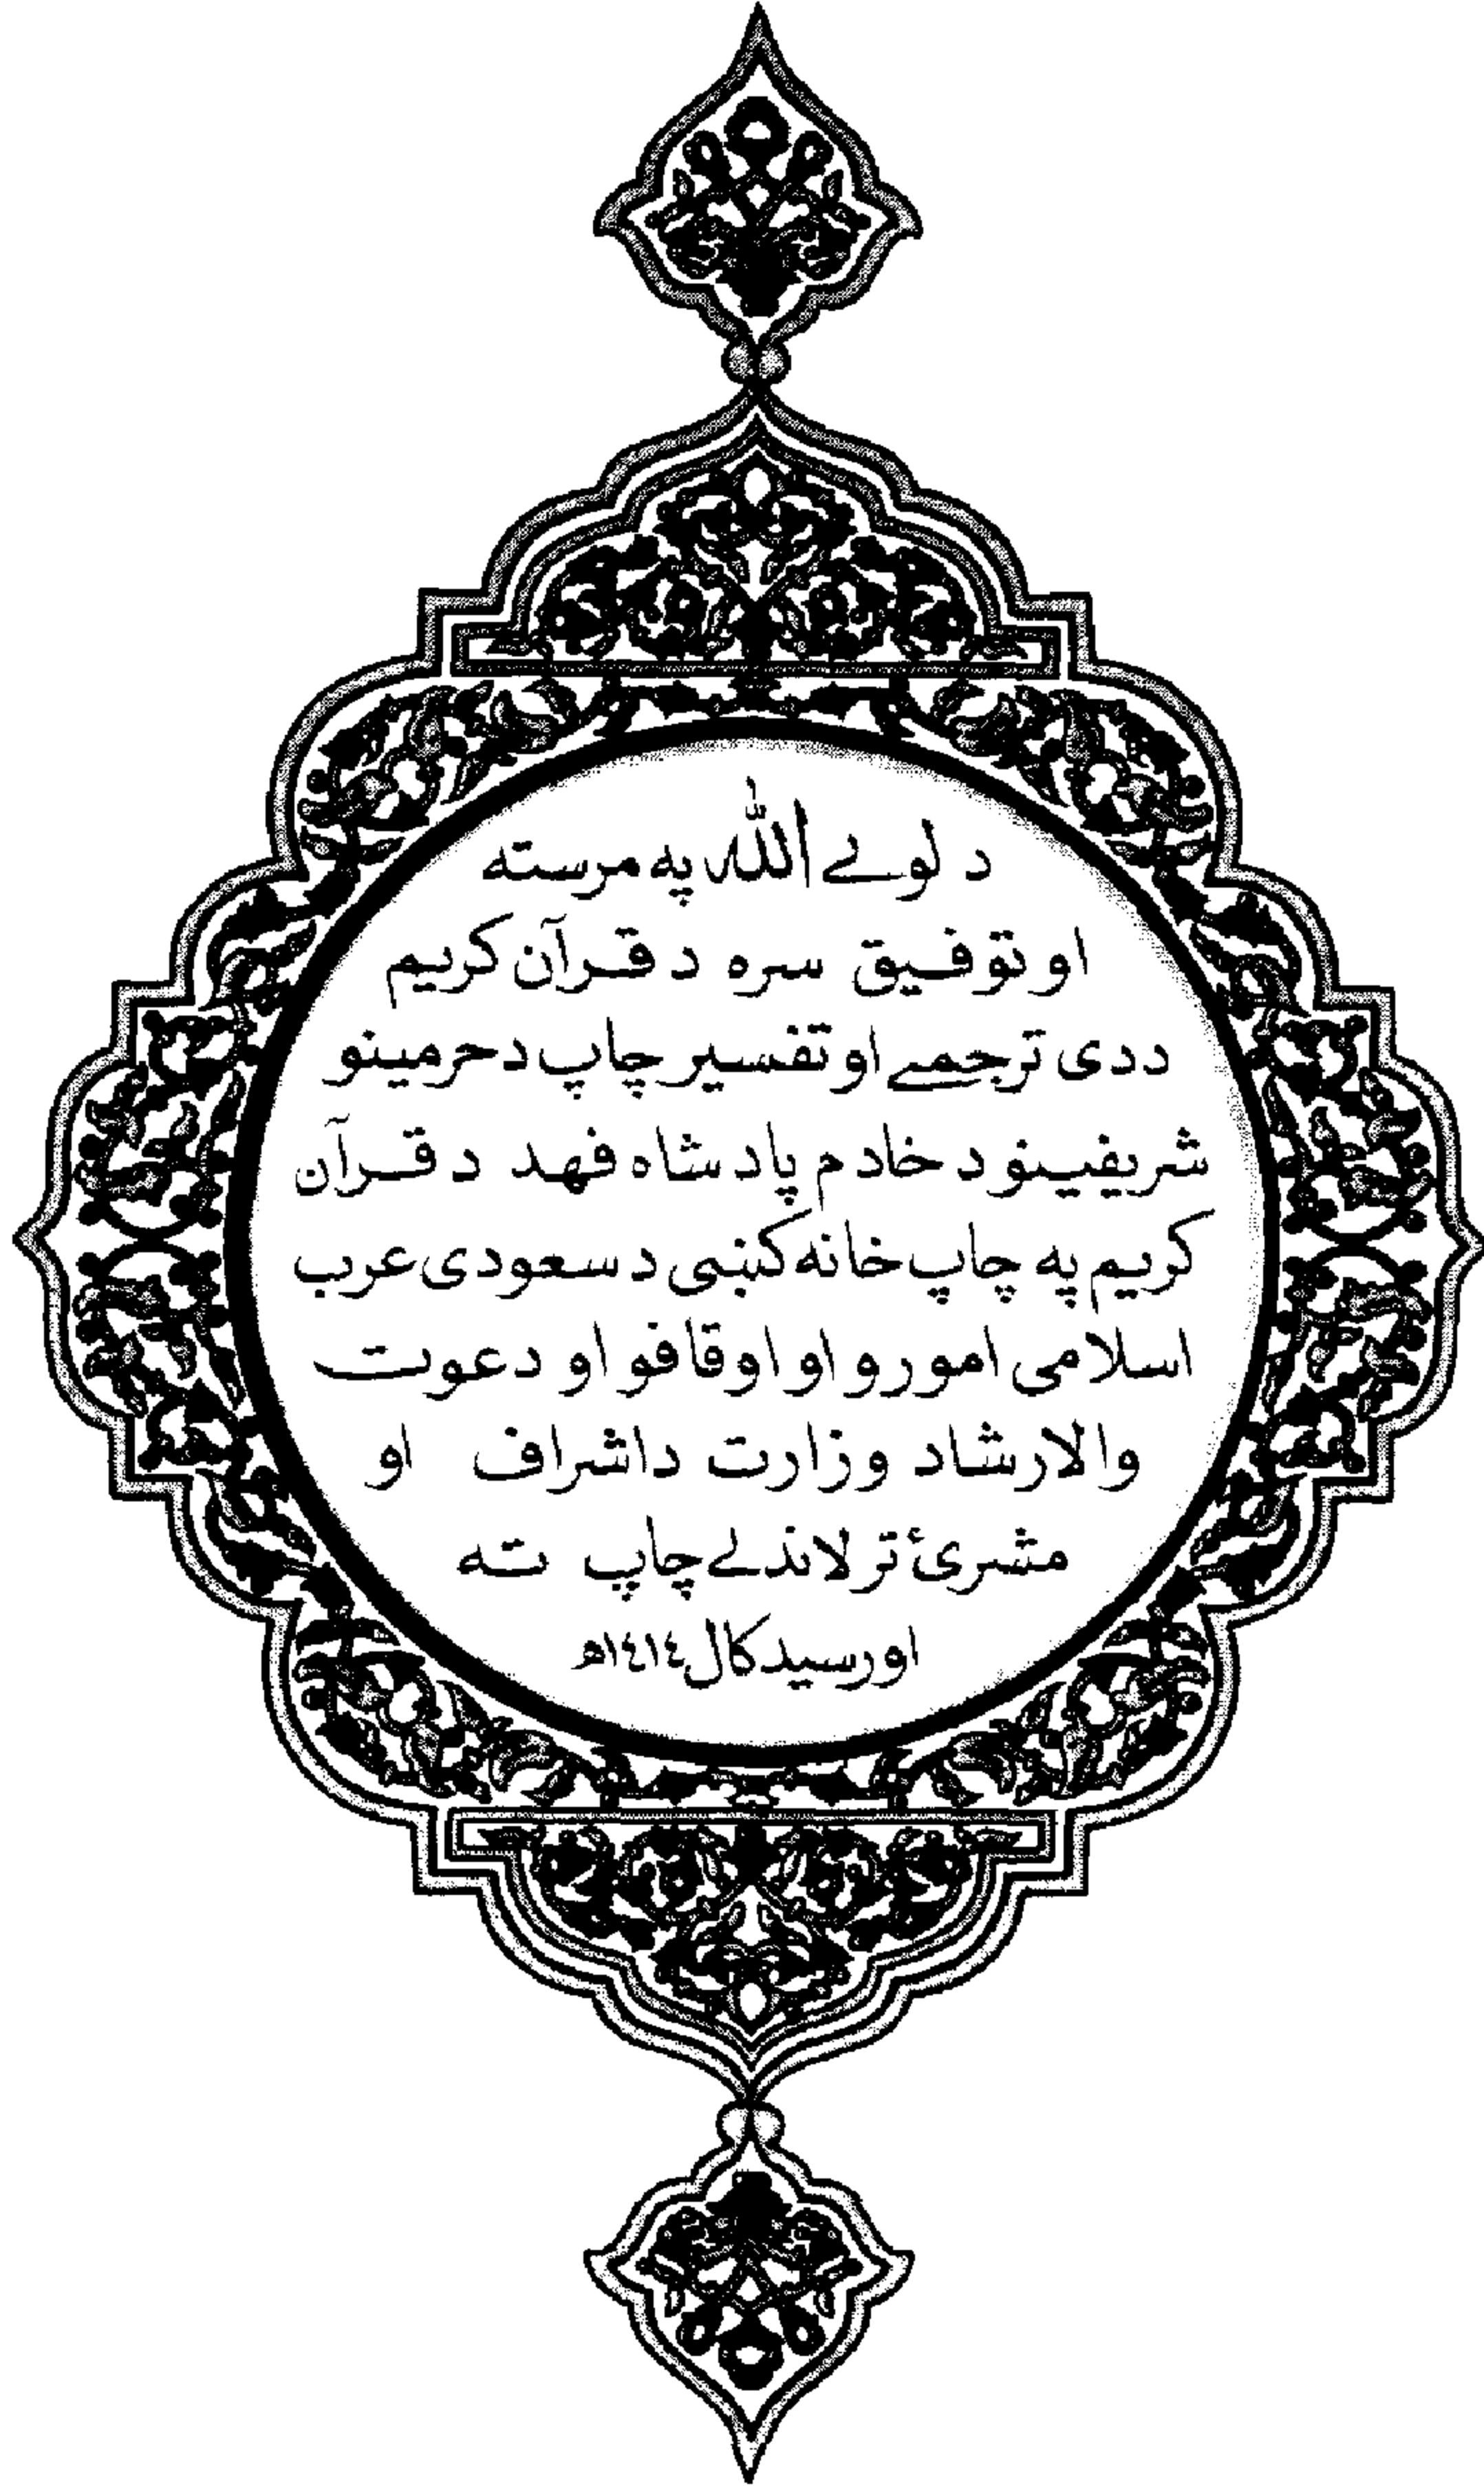 د لوے اللّٰه په مرسته
او توفيق سره د قرآن کريم
ددی ترجمے او تفسير چاپ د حرمينو
شريفينو د خادم پادشاه فهد د قرآن
کريم په چاپ خانه کښی د سعودی عرب
اسلامی امورو او اوقافو او دعوت
والارشاد وزارت داشراف او
مشرئ تر لاندے چاپ ته
اورسيد کال ١٤١٤ھ